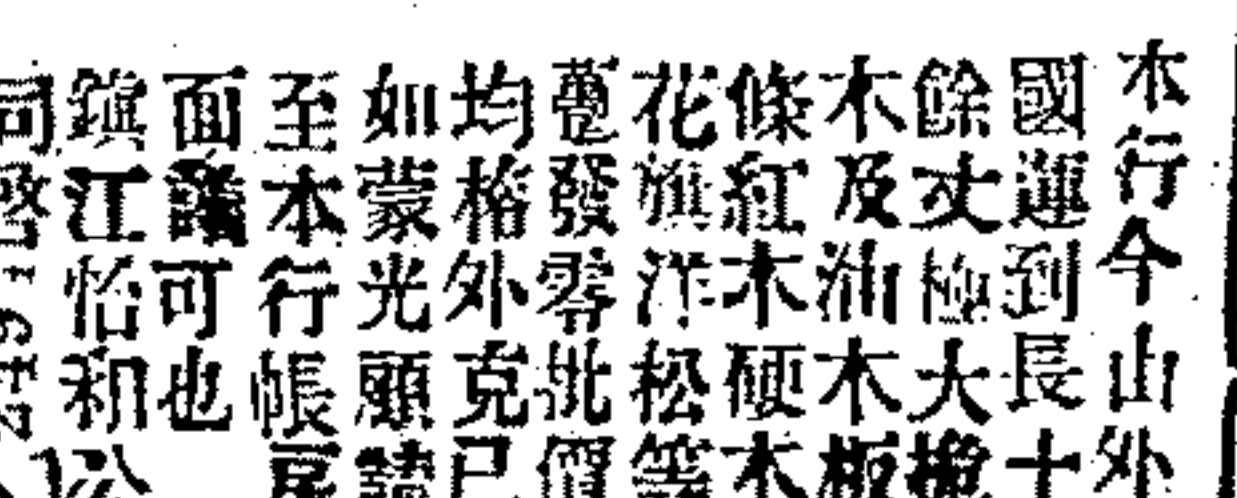 本行今山外
國運到長十
餘丈極大桅
木及油木板
條紅木硬木
花旗洋松等
躉發零批價
均格外克已
如蒙光顧請
至本行帳房
面議可也
鎮江怡和公
司啓